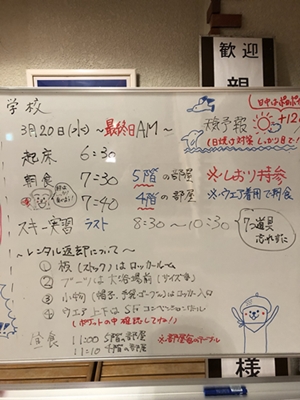 歓迎
学校
3月20日(水) ～最終日AM～
天候予報 +12
(日焼け対策 しっかり目で!
起床 6:30
朝食 7:30 5階の部屋 ※しおり持参
7:40 4階の部屋 ※ウエア着用で朝食
スキー実習 ラスト 8:30～10:30 7つ道具 忘れずに
～レンタル返却について～
① 板(ストック)はロッカールーム
② ブーツは大浴場前(サイズ毎)
③ 小物(帽子、手袋、ゴーグル)はロッカー入口
④ ウエア上下は5Fコンベンションホール
(ポケットの中確認してね!)
昼食 11:00 5階の部屋 ※部屋毎のテーブル
11:10 4階の部屋
様